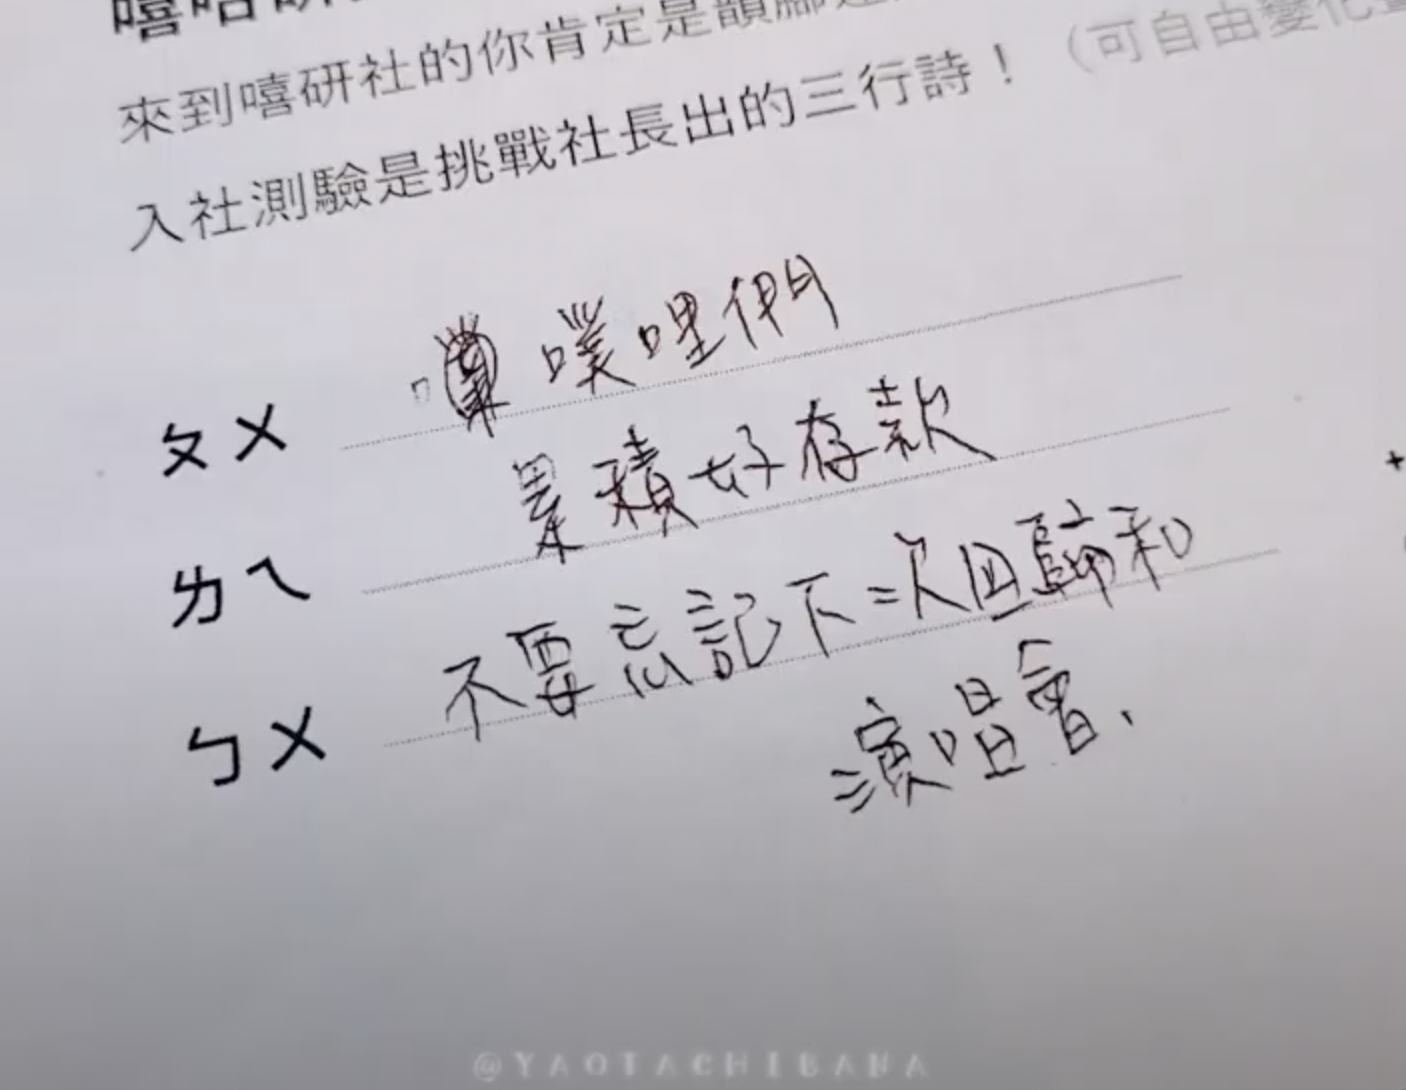 嘻哈研
來到嘻研社的你肯定是韻腳
入社測驗是挑戰社長出的三行詩！（可自由變化
ㄆㄨ 噗哩們
ㄌㄟ 累積好存款
ㄅㄨ 不要忘記下二次回歸和
演唱會、
@YAOTACHIBANA